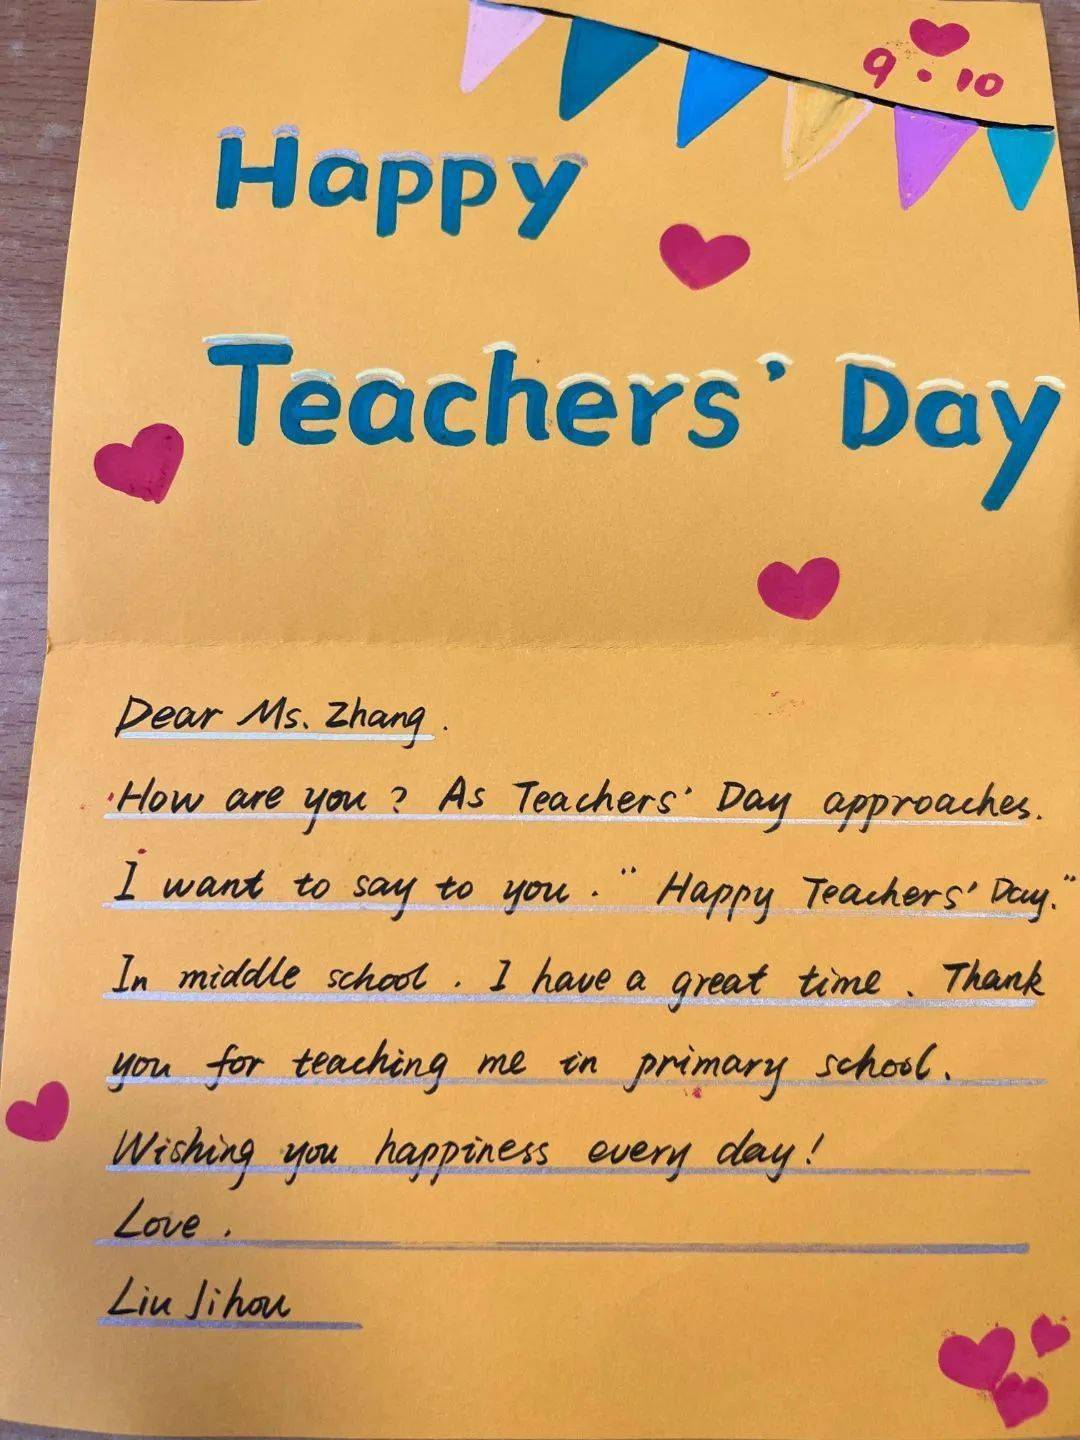 9.10
Happy
Teachers' Day
Dear Ms. Zhang.
How are you? As Teachers' Day approaches.
I want to say to you. "Happy Teachers' Day."
In middle school. I have a great time. Thank
you for teaching me in primary school.
Wishing you happiness every day!
Love.
Liu Jihou